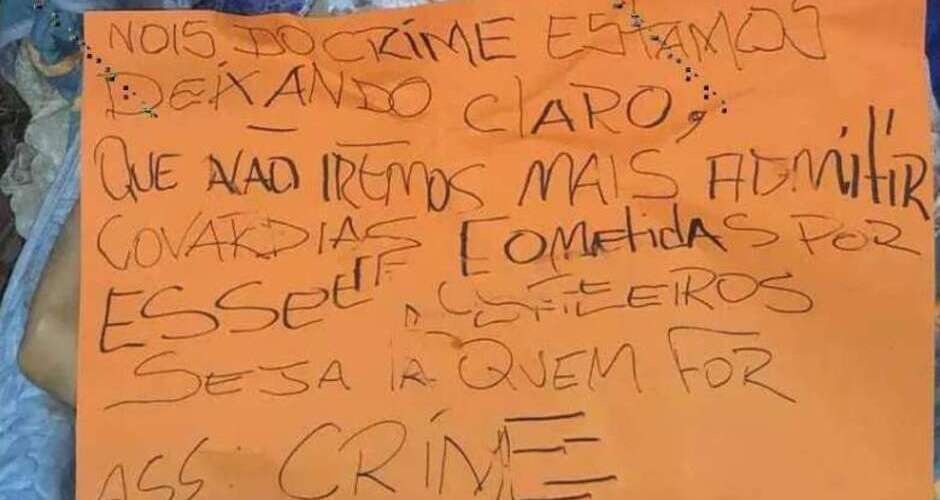 NOIS DO CRIME ESTAMOS
DEIXANDO CLARO,
QUE NÃO IREMOS MAIS ADMITIR
COVARDIAS COMETIDAS POR
SEJA LÁ QUEM FOR
ASS: CRIME